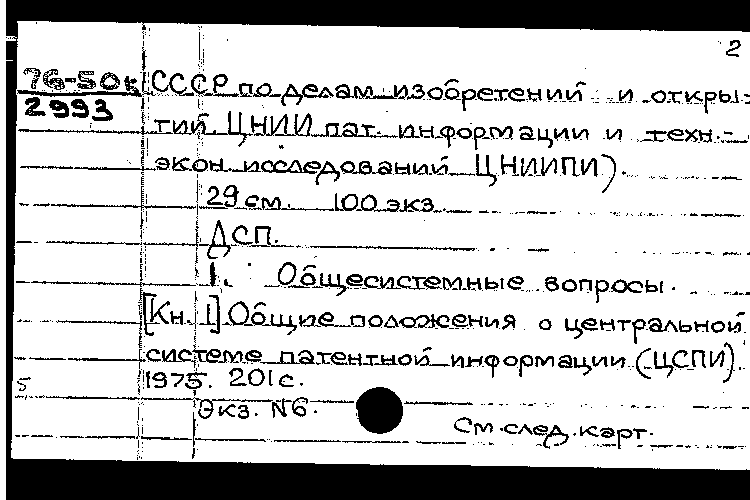 2
76-50к СССР по делам изобретений и откры-
2993
тий. ЦНИИ пат. информации и техн.-
экон. исследований ЦНИИПИ).
29 см. 100 экз.
ДСП.
1. Общесистемные вопросы.
[Кн. 1] Общие положения о центральной
системе патентной информации (ЦСПИ).
5 1975. 201 с.
Экз. N6.
См. след. карт.